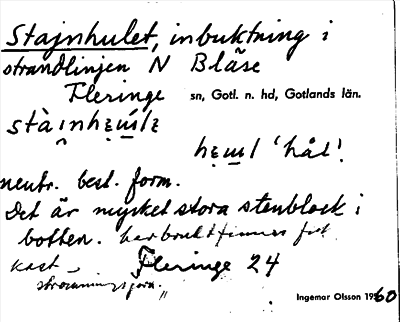 Stajnhulet, inbuktning i
strandlinjen N Bläse
Fleringe sn, Gotl. n. hd, Gotlands län.
hål'.
neutr. best. form.
Det är mycket stora stenblock i
botten.
kast Fleringe 24
Ingemar Olsson 1960